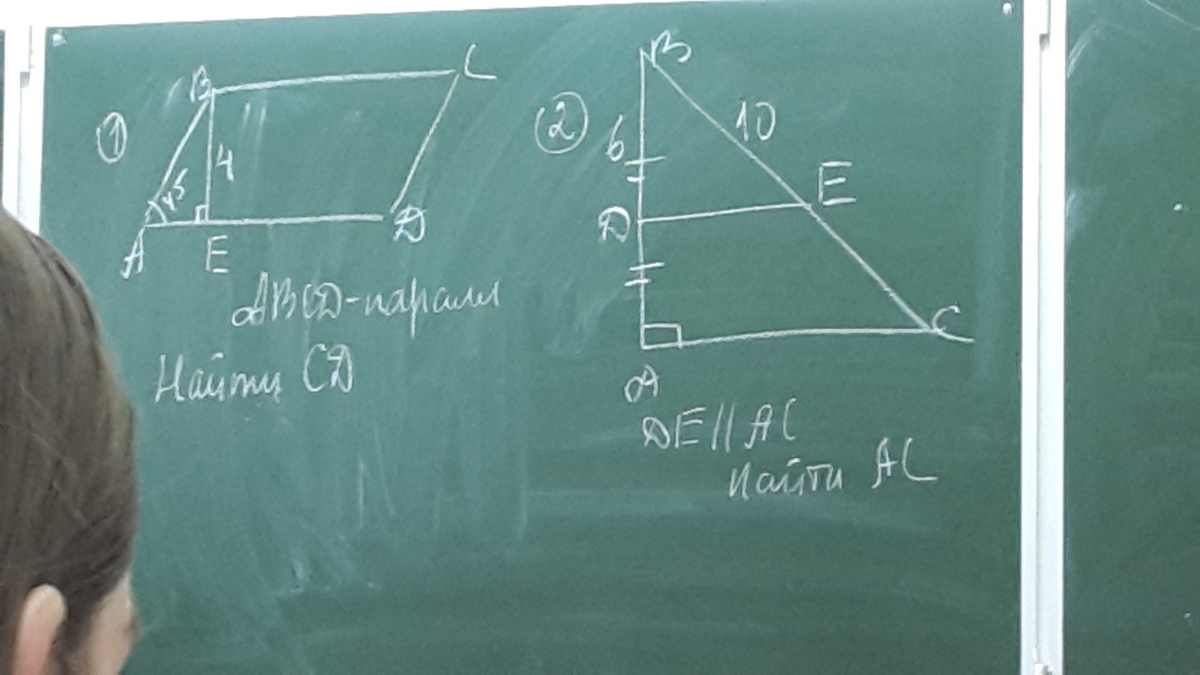 ①
B
C
4
45
A
E
D
ABCD-паралл
Найти CD
②
B
10
6
E
D
C
A
DE || AC
Найти AC